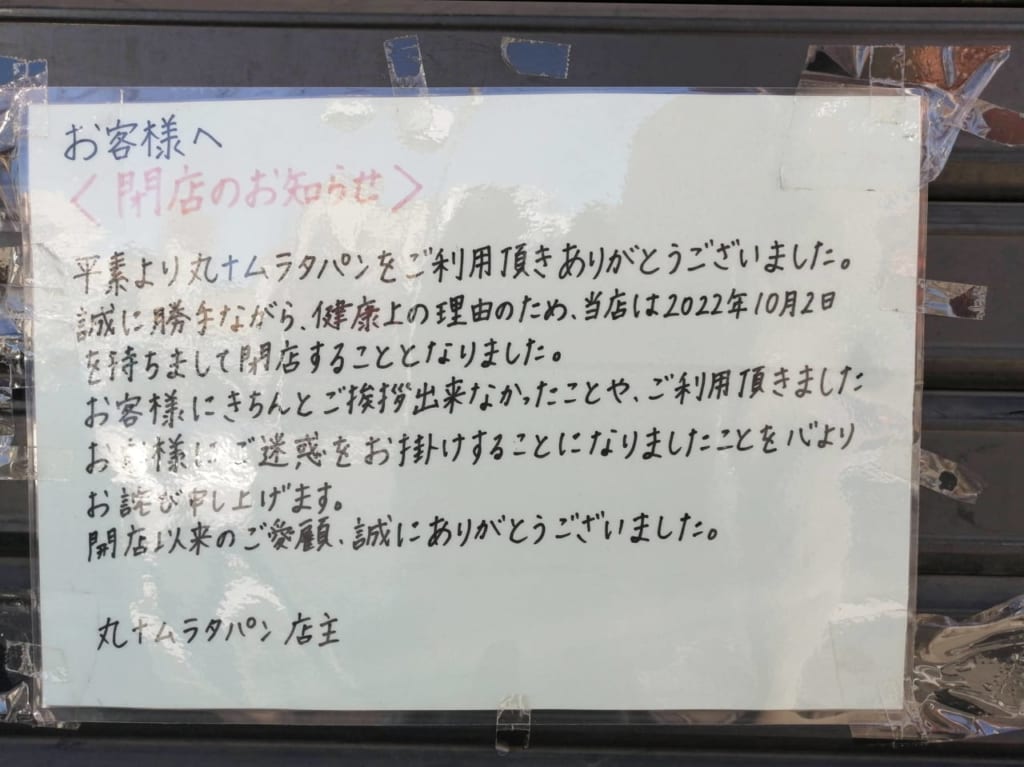 お客様へ
〈閉店のお知らせ〉
平素より丸十ムラタパンをご利用頂きありがとうございました。
誠に勝手ながら、健康上の理由のため、当店は2022年10月2日
を持ちまして閉店することとなりました。
お客様にきちんとご挨拶出来なかったことや、ご利用頂きました
お客様にご迷惑をお掛けすることになりましたことを心より
お詫び申し上げます。
開店以来のご愛顧、誠にありがとうございました。
丸十ムラタパン 店主